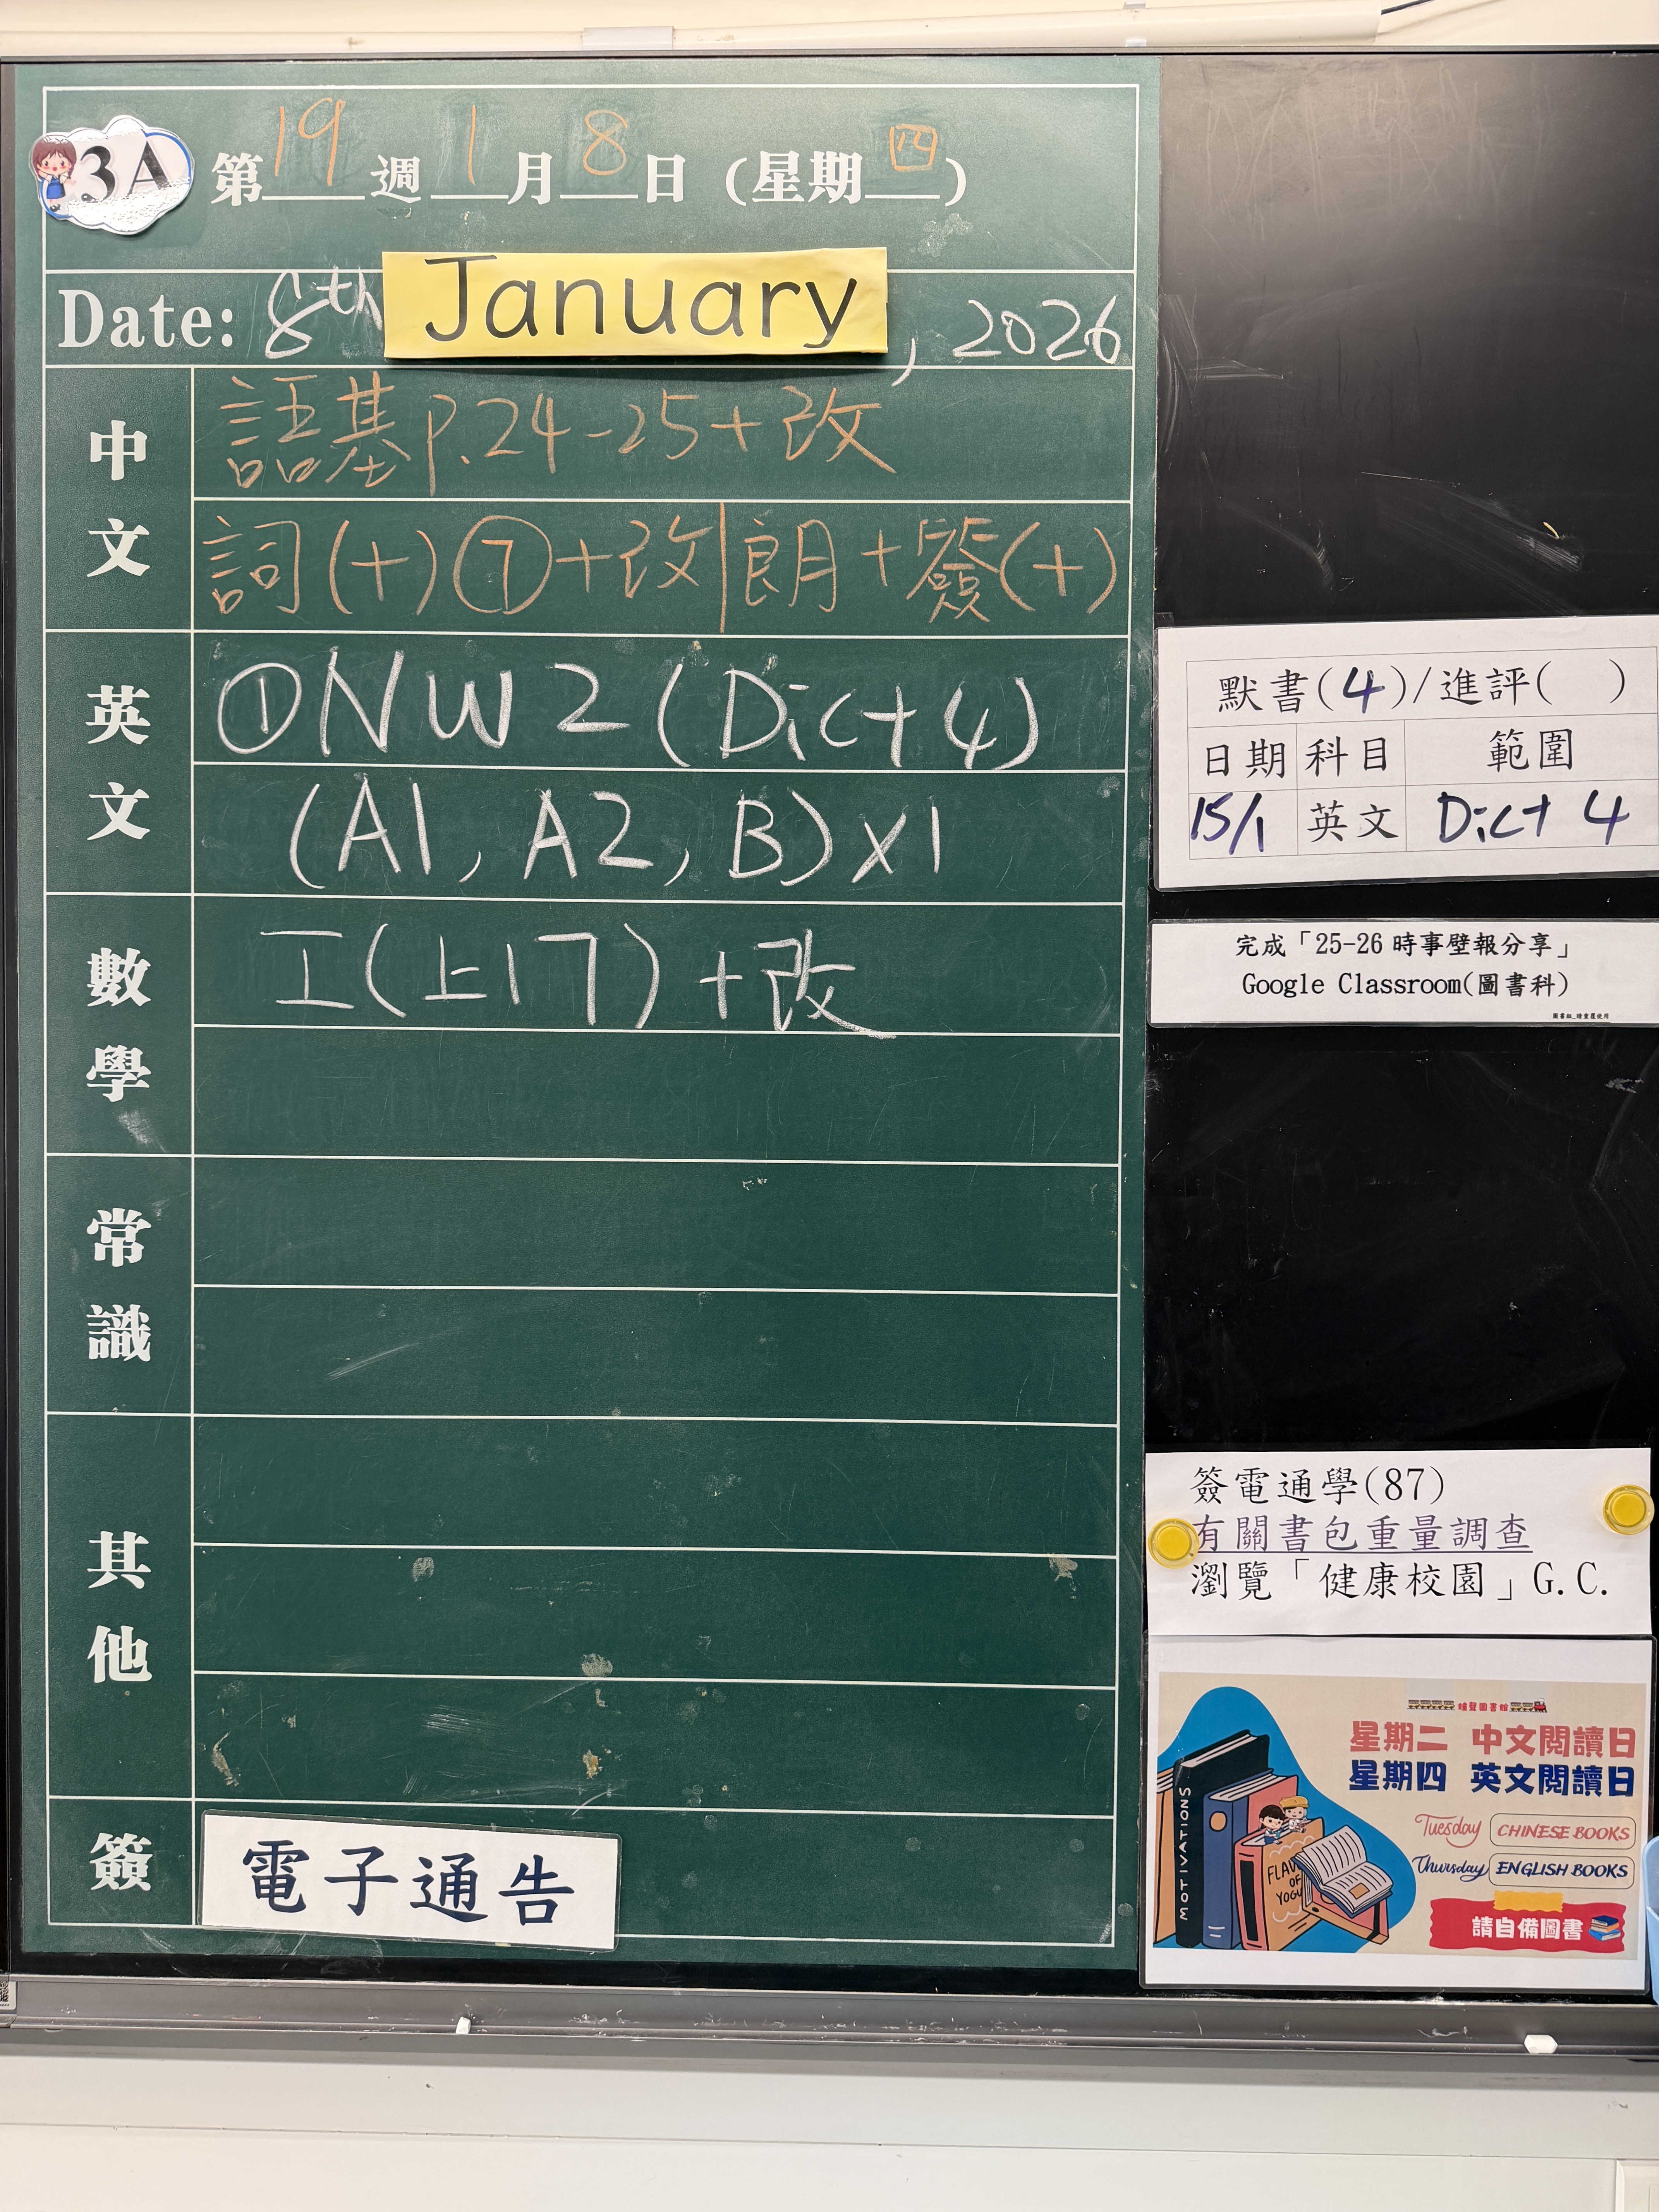 3A
第19週1月8日(星期四)
Date: 8th January, 2026
中文
語基p.24-25+改
詞(十)⑦+改|朗+簽(十)
英文
①NW2(Dict 4)
(A1, A2, B)x1
數學
工(上17)+改
常識
其他
簽
電子通告
默書(4)/進評( )
日期 科目 範圍
15/1 英文 Dict 4
完成「25-26 時事壁報分享」
Google Classroom(圖書科)
簽電通學(87)
有關書包重量調查
瀏覽「健康校園」G.C.
星期二 中文閱讀日
星期四 英文閱讀日
Tuesday CHINESE BOOKS
Thursday ENGLISH BOOKS
請自備圖書
MOTIVATIONS